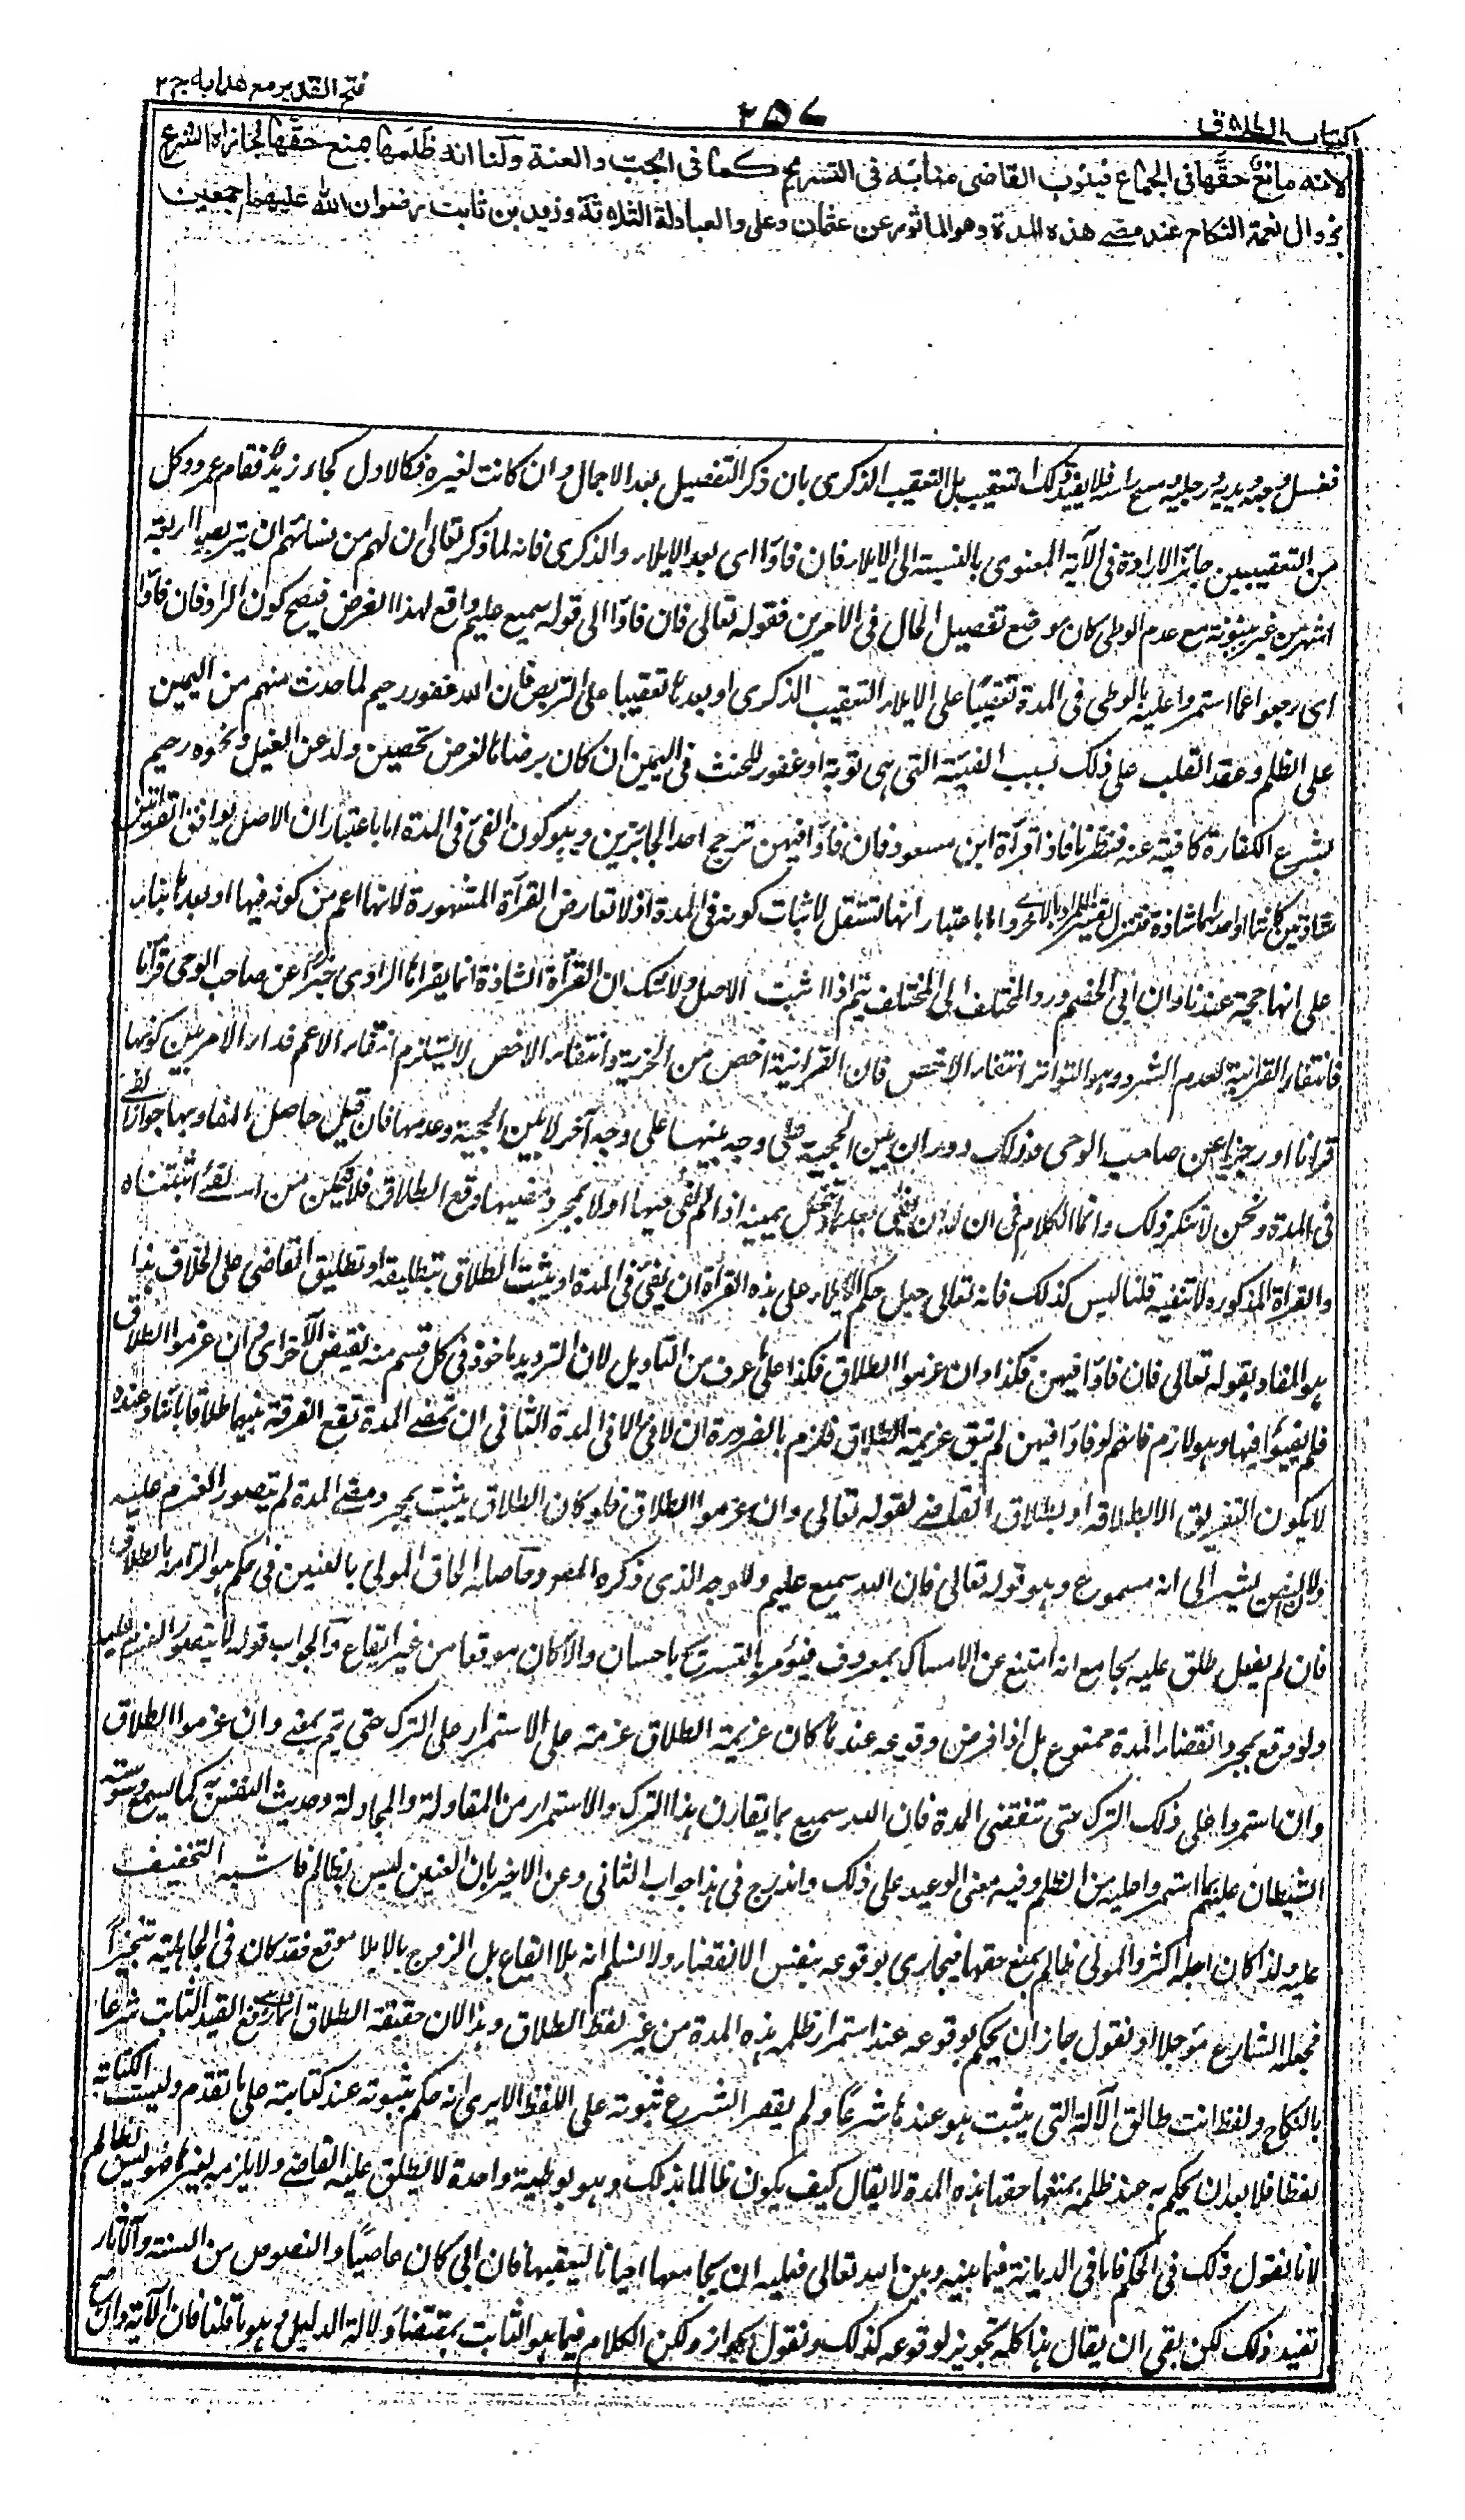 كتاب الطلاق
٢٥٧
فتح القدير مع هداية ج ٢
لانه مانعٌ حقَّها في الجماع فينوب القاضي منابَه في التسريح كما في الجب والعنة ولنا انه ظلمها بمنع حقها فجازاه الشرع
بزوال نعمة النكاح عند مضي هذه المدة وهو الماثور عن عثمان وعلي والعبادلة الثلاثة وزيد بن ثابت رضوان الله عليهم اجمعين
فغسل وجهه ويديه ورجليه ومسح راسه فلا يفيد ذلك التعقيب بل التعقيب الذكرى بان ذكر التفصيل بعد الاجمال وان كانت لغيره فكالاول كجاء زيد فقام عمرو وكل
من التعقيبين جائز الارادة فى الآية المعنوى بالنسبة الى الايلاء فان فاؤا اى بعد الايلاء والذكرى فانه لما ذكر تعالى ان لهم من نسائهم ان يتربصوا اربعة
اشهر من غير بينونة مع عدم الوطى كان موضع تفصيل الحال فى الامرين فقوله تعالى فان فاؤا الى قوله سميع عليم واقع لهذا الغرض فيصح كون المراد فان فاؤا
اى رجعوا عما استمروا عليه بالوطى فى المدة تعقيبا على الايلاء التعقيب الذكرى او بعدها تعقيبا على التربص فان الله غفور رحيم لما حدث منهم من اليمين
على الظلم وعقد القلب على ذلك بسبب الفيئة التى هى توبة او غفور للحنث فى اليمين ان كان برضاها لغرض تحصين ولد عن الغيل ونحوه رحيم
بشرع الكفارة كافية عنه فنظرنا فاذا قراة ابن مسعود فان فاؤا فيهن ترجح احد الجائزين وهو كون الفئ فى المدة اما باعتبار ان الاصل توافق القراءتين
شاذتين كانتا او احداهما شاذة فتنزل تفسير المراد بالاخرى واما باعتبار انها تستقل لاثبات كونه فى المدة اذ لا تعارض القراة المشهورة لانها اعم من كونه فيها او بعدها بناء
على انها حجة عندنا وان ابى الخصم ورد المختلف الى المختلف يتم اذا اثبت الاصل ولا شك ان القراة الشاذة انما يقراها الراوى خبرا عن صاحب الوحى قرآنا
فانتفاء القرانية لعدم الشرط وهو التواتر انتفاء الاخص فان القرانية اخص من الخبرية وانتفاء الاخص لا يستلزم انتفاء الاعم فدار الامر بين كونها
قرانا او خبرا عن صاحب الوحى وذلك دوران بين الحجية على وجه بينها على وجه آخر لا بين الحجية وعدمها فان قيل حاصل المفاد بها جواز الفئ
فى المدة ونحن لا ننكر ذلك وانما الكلام فى ان له ان يفئ بعدها وتنحل يمينه اذا لم يفئ فيها او لا بمجرد مضيها وقع الطلاق فلا يمكن من الفئ اثبتناه
والقراة المذكورة لا تنفيه قلنا ليس كذلك فانه تعالى جعل حكم الايلاء على هذه القراة ان يفئ فى المدة او يثبت الطلاق بتطليقه او تطليق القاضى على الخلاف هذا
هو المفاد بقوله تعالى فان فاؤا فيهن فكذا وان عزموا الطلاق فكذا على ما عرف من التاويل لان الترديد ماخوذ فى كل قسم منه نقيض الآخر اى وان عزموا الطلاق
فلم يفيؤا فيها وهو لازم فانهم لو فاؤا فيهن لم تبق عزيمة الطلاق فلزم بالضرورة ان لا فئ الا فى المدة الثانى ان بمضى المدة تقع الفرقة بينهما طلاقا بائنا وعنده
لا يكون التفريق الا بطلاقه او بطلاق القاضى لقوله تعالى وان عزموا الطلاق فلو كان الطلاق يثبت بمجرد مضى المدة لم يتصور العزم عليه
ولان النص يشير الى انه مسموع وهو قوله تعالى فان الله سميع عليم وللوجه الذى ذكره المص وحاصله الحاق المولى بالعنين فى حكم هو الزامه بالطلاق
فان لم يفعل طلق عليه بجامع انه امتنع عن الامساك بمعروف فيؤمر بالتسريح باحسان والا كان موقعا من غير ايقاع والجواب قوله لا يتصور العزم عليه
ولو وقع بمجرد انقضاء المدة ممنوع بل اذا فرض وقوعه عندها كان عزيمة الطلاق عزمه على الاستمرار على الترك حتى يتم بمعنى وان عزموا الطلاق
وان استمروا على ذلك الترك حتى تنقضى المدة فان الله سميع بما يقارن هذا الترك والاستمرار من المقاولة والمجادلة وحديث النفس به كما يسمع وسوسة
الشيطان عليم بما استمروا عليه من الظلم وفيه معنى الوعيد على ذلك واندرج فى هذا جواب الثانى وعن الاخير بان العنين ليس بظالم فناسبه التخفيف
عليه ولذا كان اجله اكثر والمولى ظالم بمنع حقها فيجازى بوقوعه بنفس الانقضاء ولا نسلم انه بلا ايقاع بل الزوج بالايلاء موقع فقد كان فى الجاهلية تنجيزا
فجعله الشارع مؤجلا او نقول جاز ان يحكم بوقوعه عند استمرار ظلمه هذه المدة من غير لفظ الطلاق وهذا لان حقيقة الطلاق رفع القيد الثابت شرعا
بالنكاح ولفظ انت طالق الآلة التى يثبت هو عندها شرعا ولم يقصر الشرع ثبوته على اللفظ الا يرى انه حكم بثبوته عند كتابته على ما تقدم وليست الكتابة
لفظا فلا بعد ان يحكم به عند ظلمه بمنعها حقها هذه المدة لا يقال كيف يكون ظالما بذلك وهو بوطئة واحدة لا يطلق عليه القاضى ولا يلزمه بغيرها وليس بظالم
لانا نقول ذلك فى الحكم فاما فى الديانة فيما بينه وبين الله تعالى فعليه ان يجامعها احيانا ليعفها فان ابى كان عاصيا والنصوص من السنة والآثار
تفيد ذلك لكن بقى ان يقال هذا كله تجويز لوقوعه كذلك ونقول بجوازه ولكن الكلام فيما هو الثابت بمقتضى دلالة الدليل وهو ما قلنا فان الآية وان صح